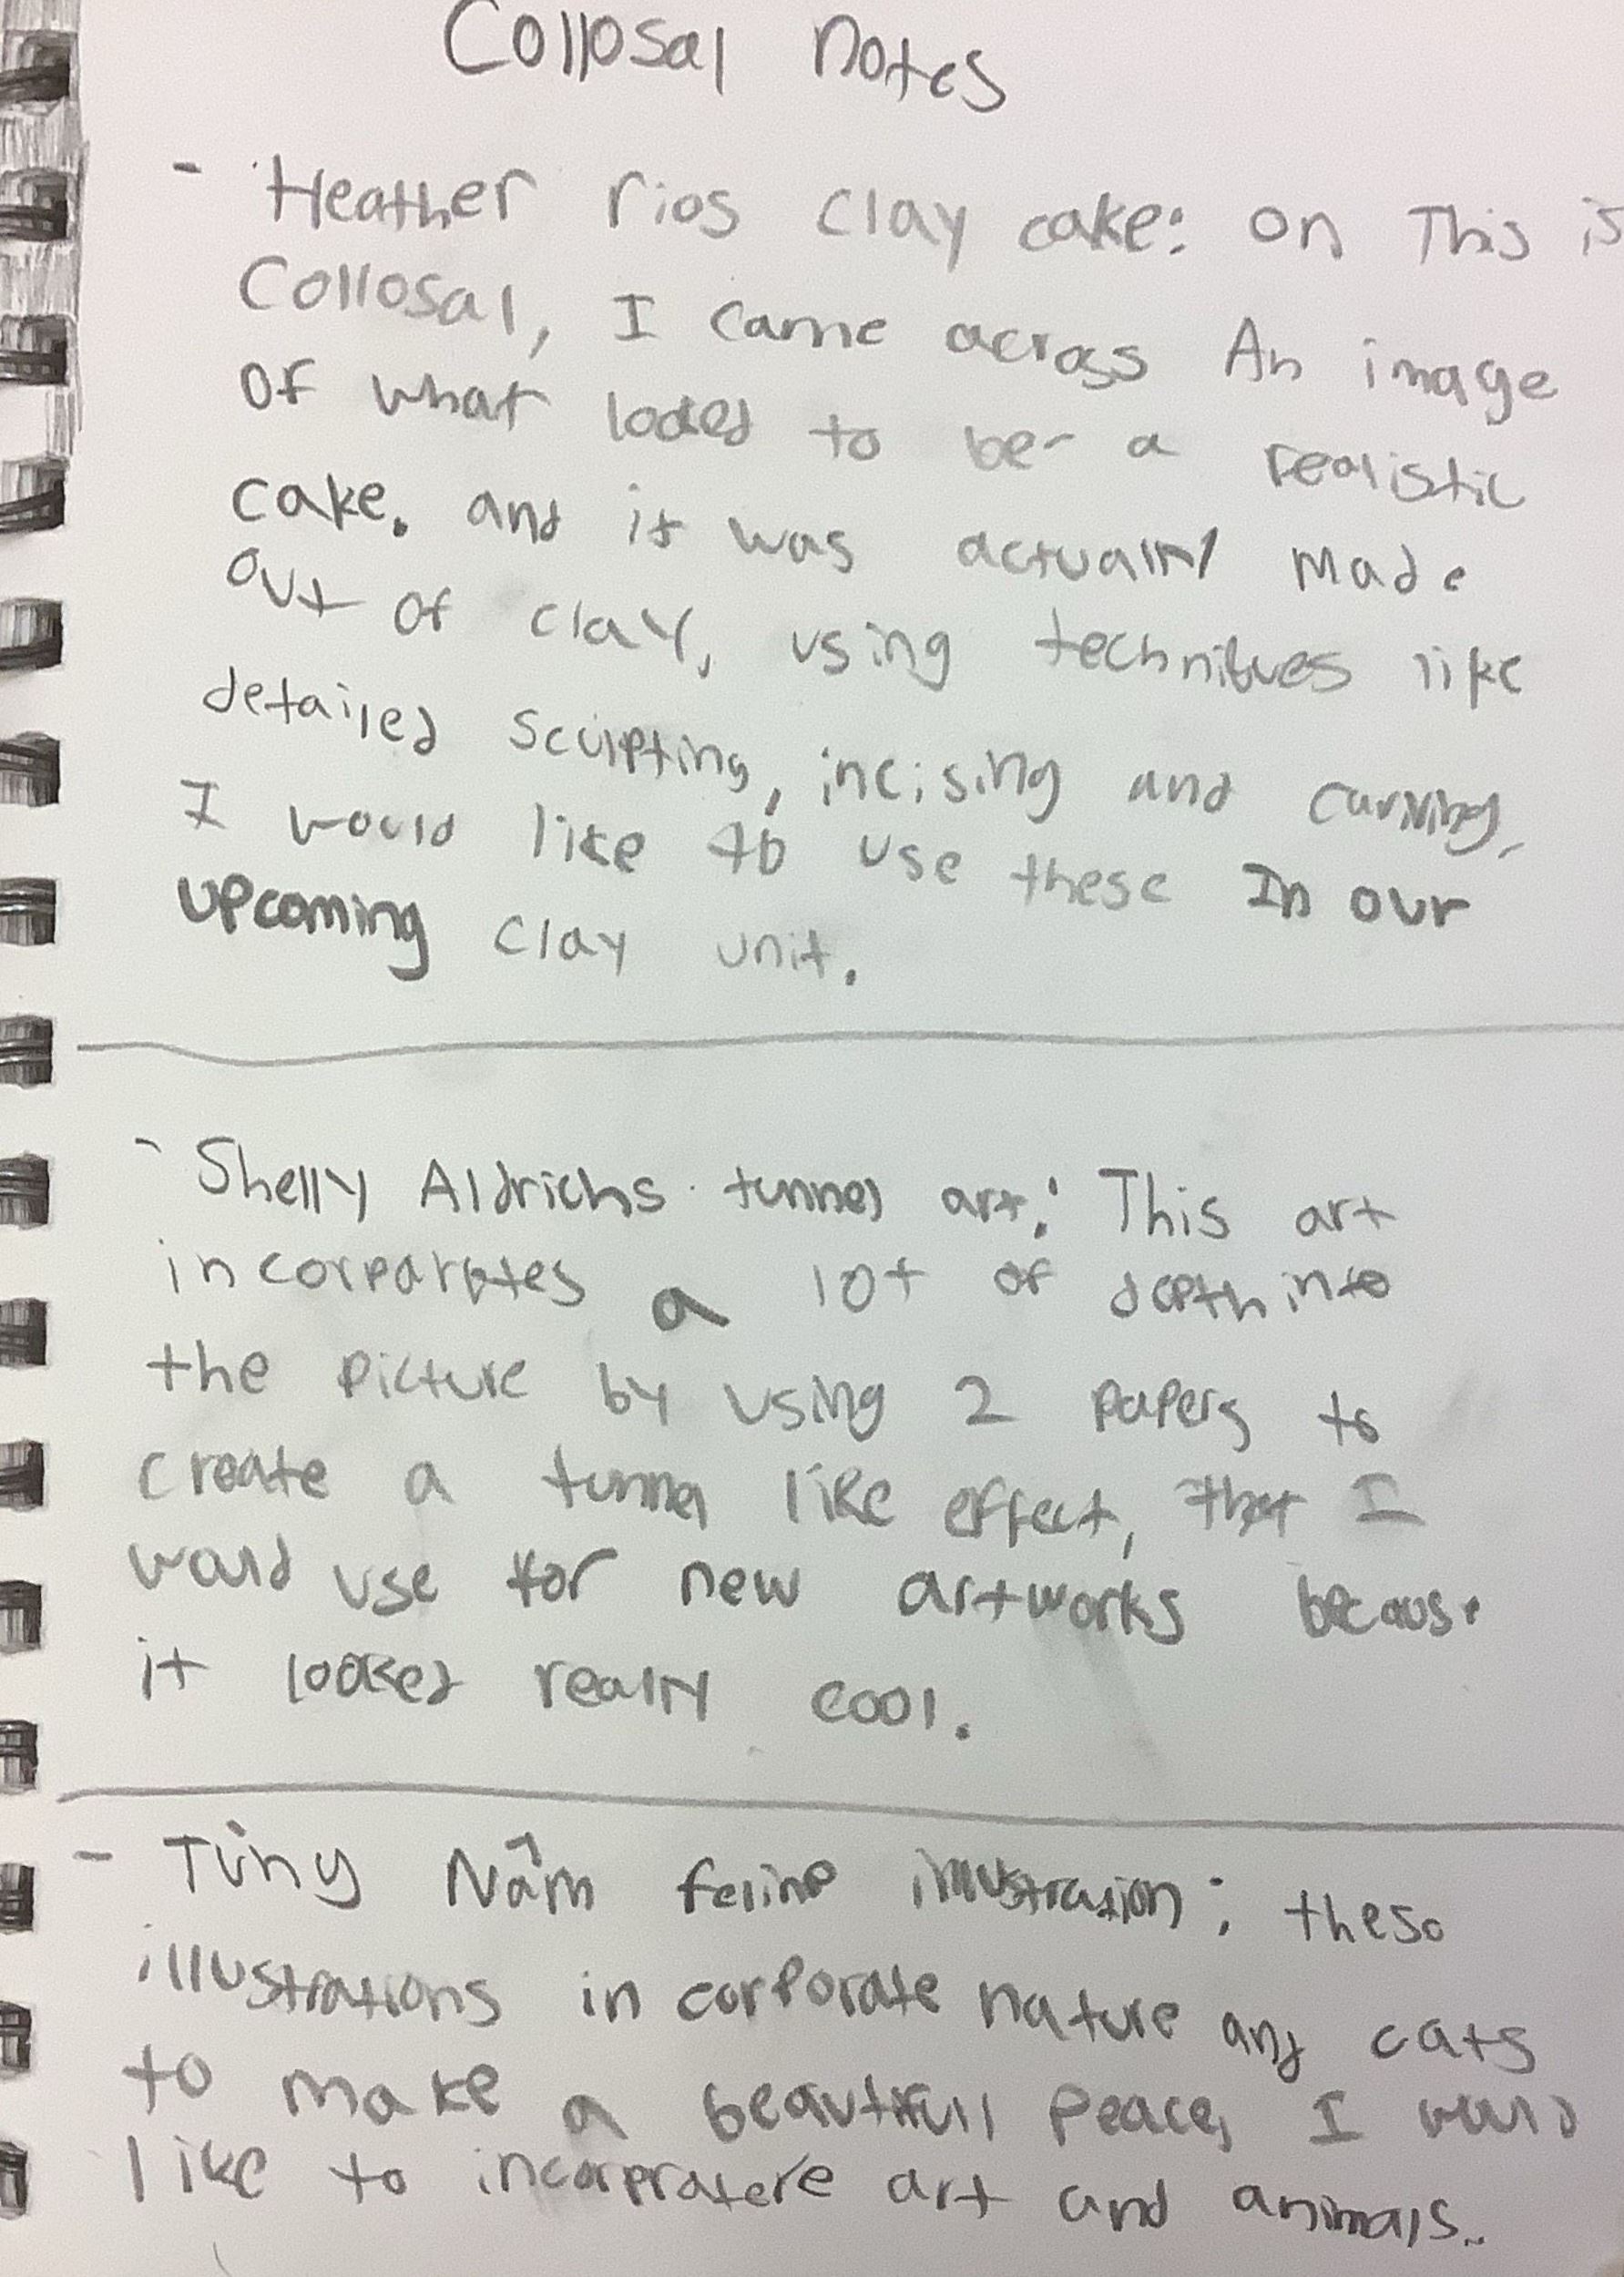 Collosal notes
- Heather rios clay cake: on This is
Collosal, I came across An image
of what looked to be a realistic
cake. and it was actually made
out of clay, using techniques like
detailed sculpting, incising and carving,
I would like to use these In our
upcoming clay unit.
- Shelly Aldrichs tunnel art: This art
incorparates a lot of depth into
the picture by using 2 papers to
create a tunnel like effect, that I
would use for new artworks because
it looked really cool.
- Tùng Nâm feline illustration: these
illustrations in corporate nature and cats
to make a beautifull peace, I would
like to art and animals.